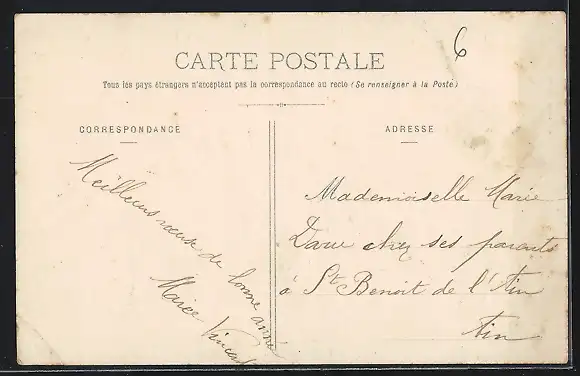 6
CARTE POSTALE
Tous les pays étrangers n'acceptent pas la correspondance au recto (Se renseigner à la Poste)
CORRESPONDANCE
ADRESSE
Meilleurs vœux de bonne année
Vincent
Mademoiselle Marie
chez ses parents
à St Benoit de l'Ain
Ain